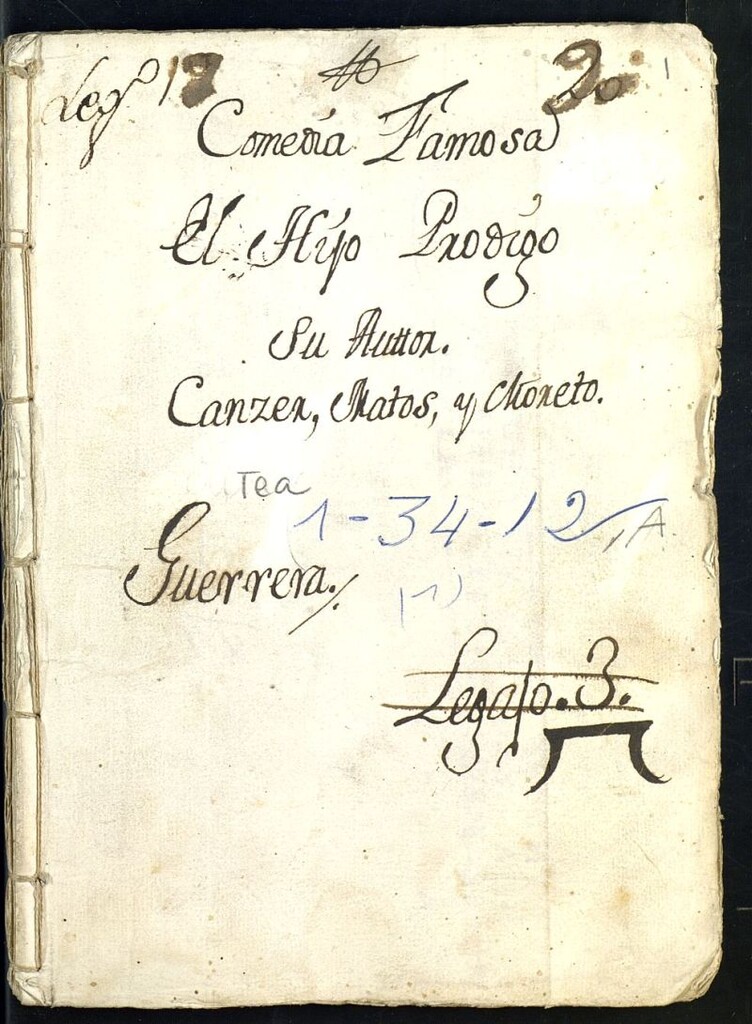 Leg.º 1
1
Comedia Famosa
El Hijo Prodigo
Su Auttor.
Canzer, Matos, y Moreto.
Tea
1-34-12, A
Guerrera./
(1)
Legajo. 3.